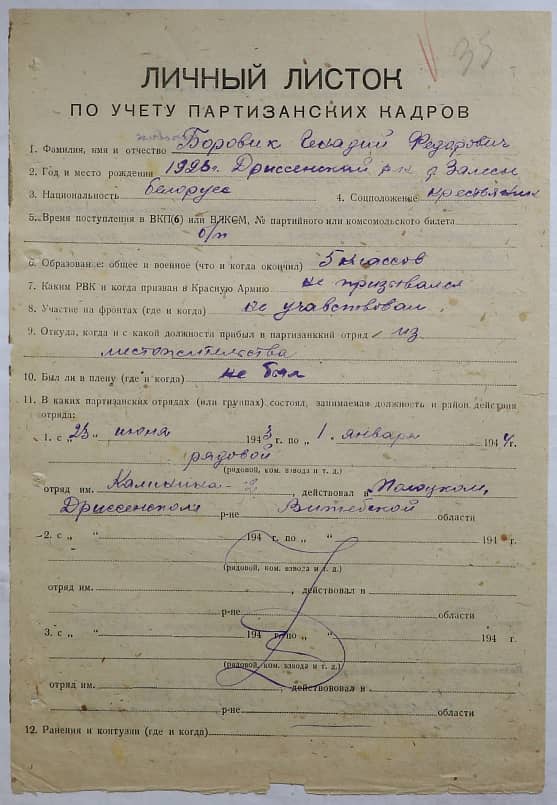 35
ЛИЧНЫЙ ЛИСТОК
ПО УЧЕТУ ПАРТИЗАНСКИХ КАДРОВ
1. Фамилия, имя и отчество Боровик Генадий Федорович
2. Год и место рождения 1926г. Дриссенский р-н д. Залесы
3. Национальность белорусс 4. Соцположение крестьянин
5. Время поступления в ВКП(б) или ВЛКСМ, № партийного или комсомольского билета
б/п
6. Образование: общее и военное (что и когда окончил) 5 классов
7. Каким РВК и когда призван в Красную Армию не призывался
8. Участие на фронтах (где и когда) не учавствовал
9. Откуда, когда и с какой должности прибыл в партизанский отряд из
местожительства
10. Был ли в плену (где и когда) не был
11. В каких партизанских отрядах (или группах) состоял, занимаемая должность и район действия
отряда:
1. с „23„ июня 1943 г. по „1„ января 1944 г.
рядовой
(рядовой, ком. взвода и т. д.)
отряд им. Калинина-2, действовал в Полоцком,
Дриссенском р-не Витебской области
2. с „ „ 194 г. по „ „ 194 г.
(рядовой, ком. взвода и т. д.)
отряд им. , действовал в
р-не области
3. с „ „ 194 г. по „ „ 194 г.
(рядовой, ком. взвода и т. д.)
отряд им. , действововал в
р-не области
12. Ранения и контузии (где и когда)